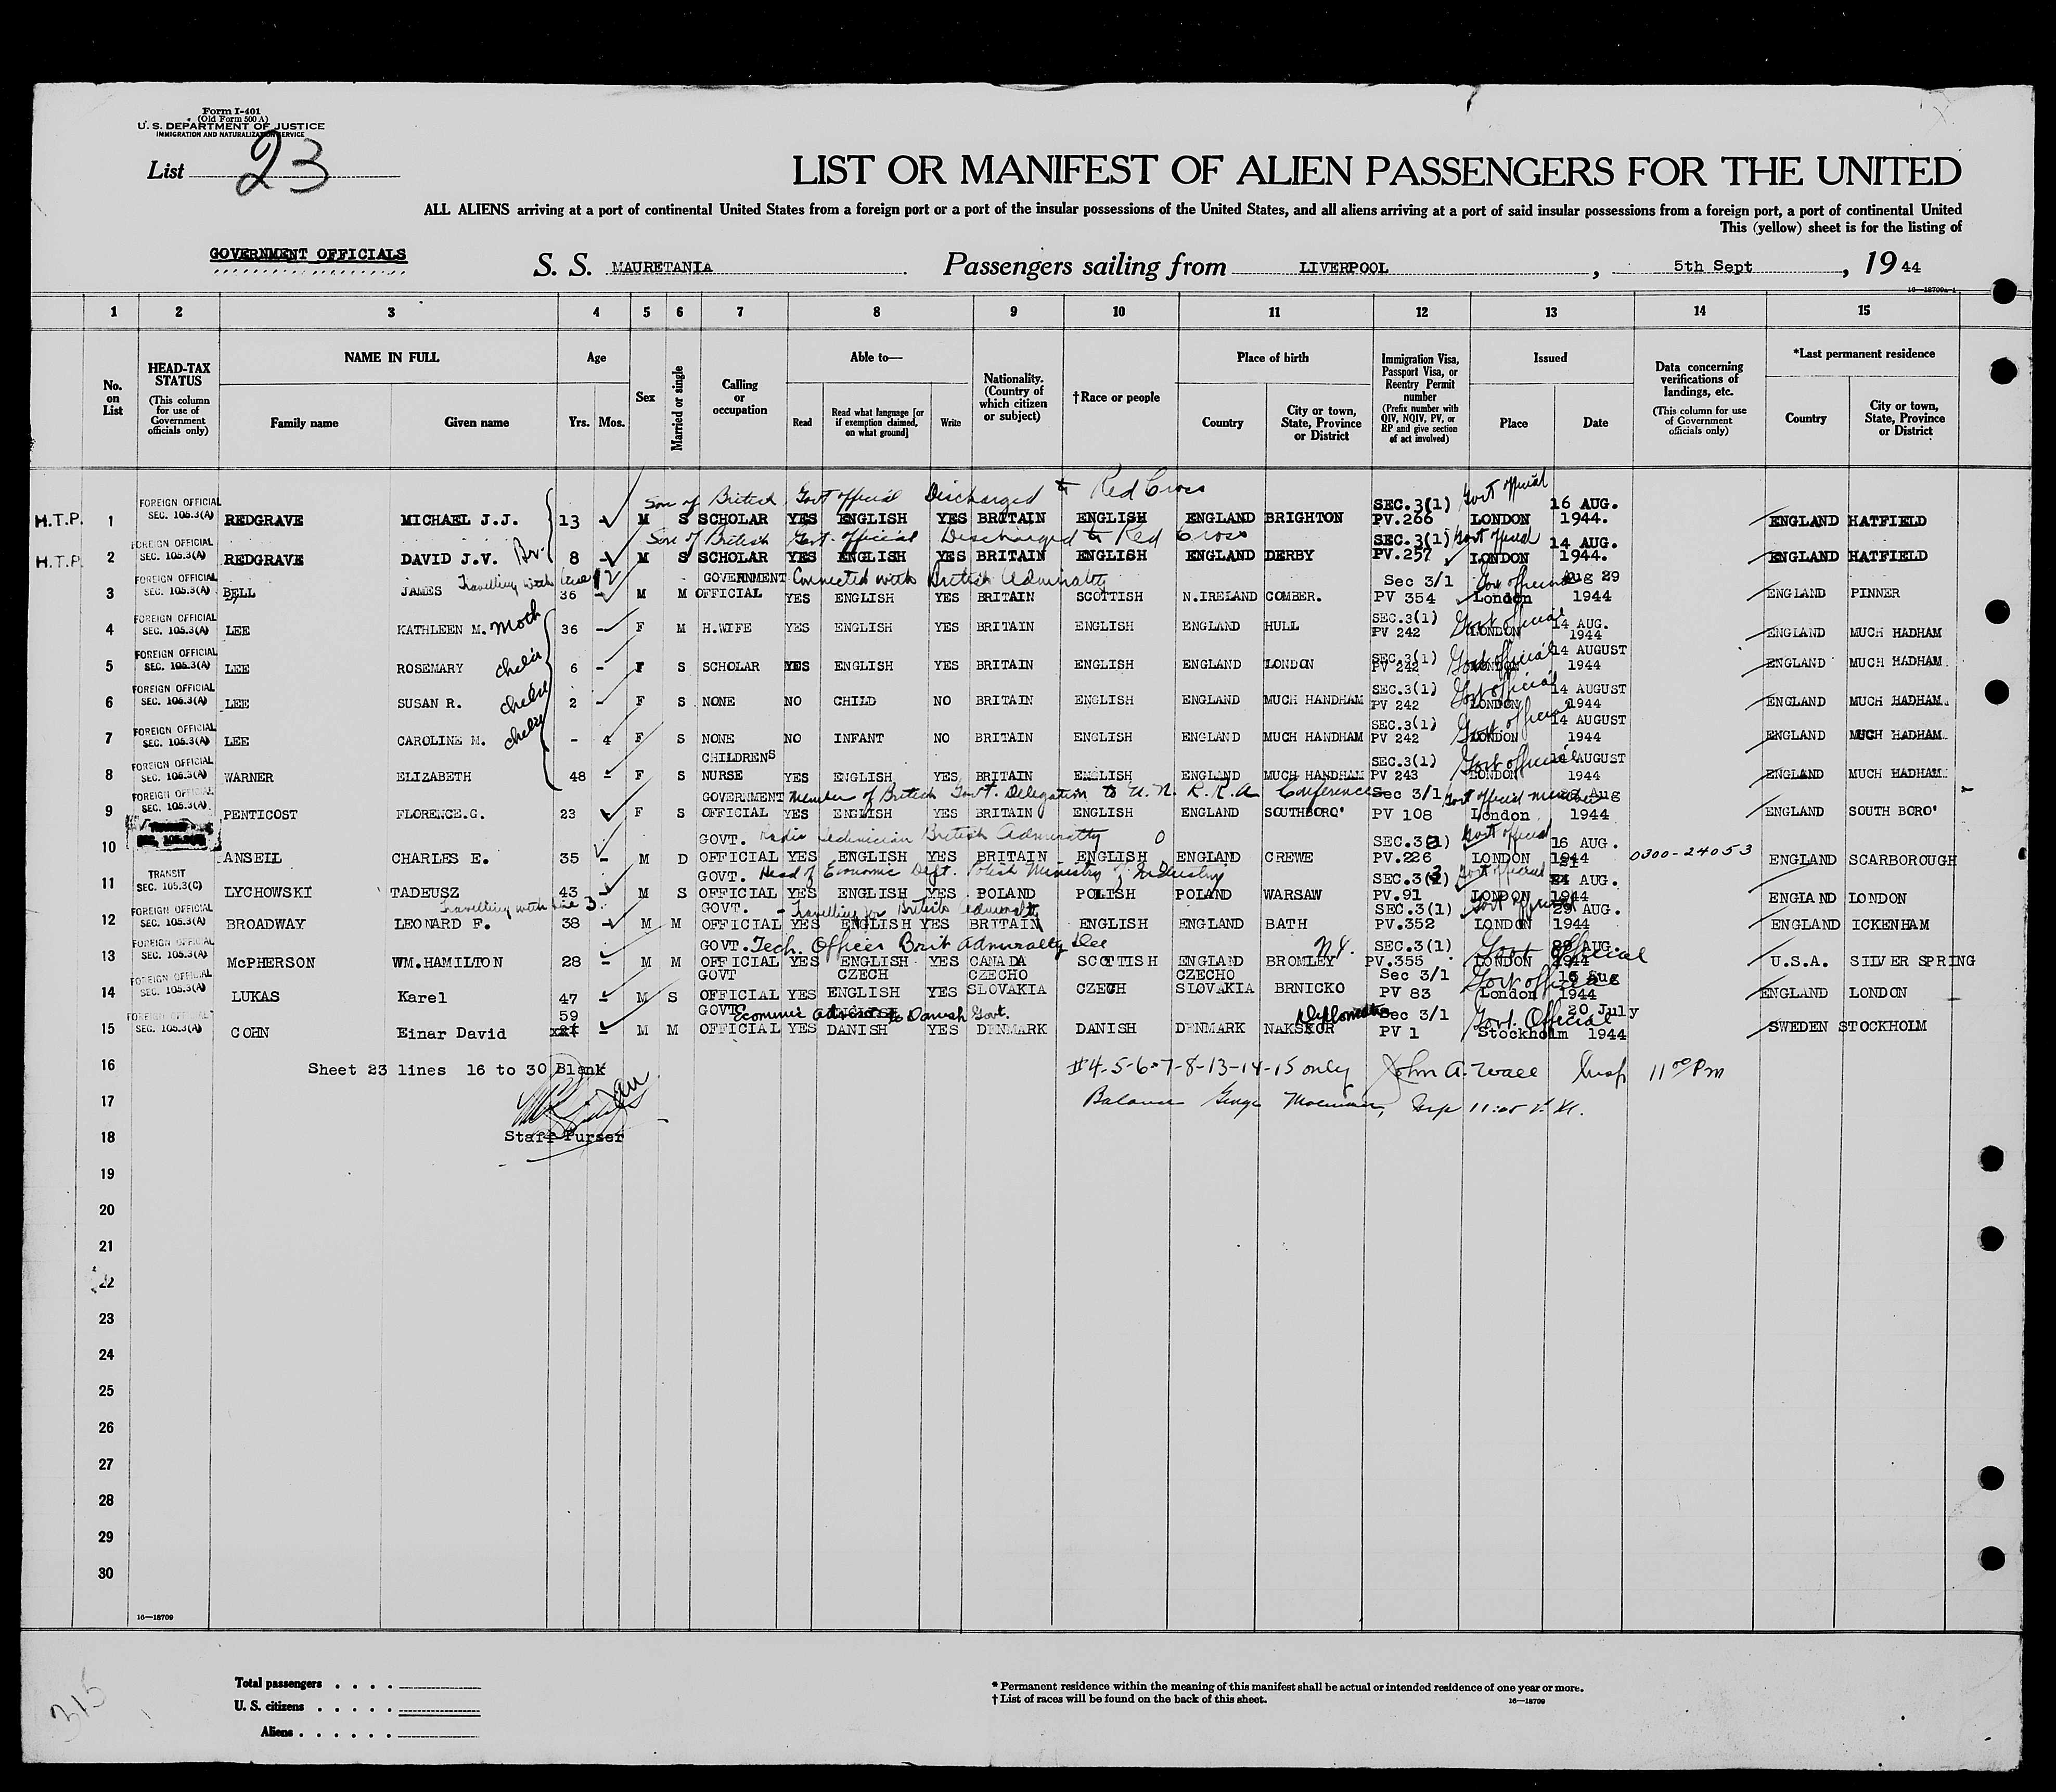 Form I-401
(Old Form 500 A)
U. S. DEPARTMENT OF JUSTICE
IMMIGRATION AND NATURALIZATION SERVICE
List 23
LIST OR MANIFEST OF ALIEN PASSENGERS FOR THE UNITED
ALL ALIENS arriving at a port of continental United States from a foreign port or a port of the insular possessions of the United States, and all aliens arriving at a port of said insular possessions from a foreign port, a port of continental United
This (yellow) sheet is for the listing of
GOVERNMENT OFFICIALS
S. S. MAURETANIA Passengers sailing from LIVERPOOL, 5th Sept, 19 44
16—18709a-1
1 2 3 4 5 6 7 8 9 10 11 12 13 14 15
No. on List
HEAD-TAX STATUS
(This column for use of Government officials only)
NAME IN FULL
Family name
Given name
Age
Yrs. Mos.
Sex
Married or single
Calling or occupation
Able to—
Read
Read what language [or if exemption claimed, on what ground]
Write
Nationality. (Country of which citizen or subject)
†Race or people
Place of birth
Country
City or town, State, Province or District
Immigration Visa, Passport Visa, or Reentry Permit number
(Prefix number with QIV, NQIV, PV, or RP and give section of act involved)
Issued
Place
Date
Data concerning verifications of landings, etc.
(This column for use of Government officials only)
*Last permanent residence
Country
City or town, State, Province or District
FOREIGN OFFICIAL Son of British Govt official Discharged to Red Cross SEC.3(1) Govt official 16 AUG.
H.T.P. 1 SEC. 105.3(A) REDGRAVE MICHAEL J.J. 13 - M S SCHOLAR YES ENGLISH YES BRITAIN ENGLISH ENGLAND BRIGHTON PV.266 LONDON 1944. ENGLAND HATFIELD
FOREIGN OFFICIAL Son of British Govt. official Discharged to Red Cross SEC.3(1) Govt official 14 AUG.
H.T.P. 2 SEC. 105.3(A) REDGRAVE DAVID J.V. Br. 8 - M S SCHOLAR YES ENGLISH YES BRITAIN ENGLISH ENGLAND DERBY PV.257 LONDON 1944. ENGLAND HATFIELD
FOREIGN OFFICIAL Travelling with line 12 GOVERNMENT Connected with British Admiralty Sec 3/1 Gov official Aug 29
3 SEC. 105.3(A) BELL JAMES 36 - M M OFFICIAL YES ENGLISH YES BRITAIN SCOTTISH N.IRELAND COMBER. PV 354 London 1944 ENGLAND PINNER
FOREIGN OFFICIAL SEC.3(1) Govt official 14 AUG.
4 SEC. 105.3(A) LEE KATHLEEN M. Moth 36 - F M H.WIFE YES ENGLISH YES BRITAIN ENGLISH ENGLAND HULL PV 242 LONDON 1944 ENGLAND MUCH HADHAM
FOREIGN OFFICIAL SEC.3(1) Govt official 14 AUGUST
5 SEC. 105.3(A) LEE ROSEMARY 6 - F S SCHOLAR YES ENGLISH YES BRITAIN ENGLISH ENGLAND LONDON PV 242 LONDON 1944 ENGLAND MUCH HADHAM
FOREIGN OFFICIAL SEC.3(1) Govt official 14 AUGUST
6 SEC. 105.3(A) LEE SUSAN R. 2 - F S NONE NO CHILD NO BRITAIN ENGLISH ENGLAND MUCH HANDHAM PV 242 LONDON 1944 ENGLAND MUCH HADHAM.
FOREIGN OFFICIAL SEC.3(1) Govt official 14 AUGUST
7 SEC. 105.3(A) LEE CAROLINE M. - 4 F S NONE NO INFANT NO BRITAIN ENGLISH ENGLAND MUCH HANDHAM PV 242 LONDON 1944 ENGLAND MUCH HADHAM.
FOREIGN OFFICIAL CHILDRENS SEC.3(1) Govt official AUGUST
8 SEC. 105.3(A) WARNER ELIZABETH 48 - F S NURSE YES ENGLISH YES BRITAIN ENGLISH ENGLAND MUCH HANDHAM PV 243 LONDON 1944 ENGLAND MUCH HADHAM.
FOREIGN OFFICIAL GOVERNMENT Member of British Govt. Delegation to U. N. R. R. A Conference Sec 3/1 Govt official member Aug
9 SEC. 105.3(A) PENTICOST FLORENCE.G. 23 F S OFFICIAL YES ENGLISH YES BRITAIN ENGLISH ENGLAND SOUTHBORO' PV 108 London 1944 ENGLAND SOUTH BORO'
GOVT. Radio technician British Admiralty SEC.3(1) Govt official 16 AUG.
10 ANSELL CHARLES E. 35 - M D OFFICIAL YES ENGLISH YES BRITAIN ENGLISH ENGLAND CREWE PV.226 LONDON 1944 0300-24053 ENGLAND SCARBOROUGH
TRANSIT GOVT. Head of Economic Dept. Polish Ministry of Industry SEC.3(3) Govt official AUG.
11 SEC. 105.3(C) LYCHOWSKI TADEUSZ 43 - M S OFFICIAL YES ENGLISH YES POLAND POLISH POLAND WARSAW PV.91 LONDON 1944 ENGLAND LONDON
FOREIGN OFFICIAL Travelling with line 3 GOVT. - Travelling for British Admiralty SEC.3(1) Govt official 29 AUG.
12 SEC. 105.3(A) BROADWAY LEONARD F. 38 - M M OFFICIAL YES ENGLISH YES BRITAIN ENGLISH ENGLAND BATH PV.352 LONDON 1944 ENGLAND ICKENHAM
FOREIGN OFFICIAL GOVT. Tech. Officer Brit Admiralty SEC.3(1) Govt Official 29 AUG.
13 SEC. 105.3(A) McPHERSON WM.HAMILTON 28 - M M OFFICIAL YES ENGLISH YES CANADA SCOTTISH ENGLAND BROMLEY PV.355 LONDON 1944 U.S.A. SILVER SPRING
FOREIGN OFFICIAL GOVT CZECH CZECHO CZECHO Sec 3/1 Govt official Aug
14 SEC. 105.3(A) LUKAS Karel 47 - M S OFFICIAL YES ENGLISH YES SLOVAKIA CZECH SLOVAKIA BRNICKO PV 83 London 1944 ENGLAND LONDON
FOREIGN OFFICIAL 59 GOVT Economic Adviser to Danish Govt. Diplomatic Sec 3/1 Govt. Official 20 July
15 SEC. 105.3(A) COHN Einar David M M OFFICIAL YES DANISH YES DENMARK DANISH DENMARK NAKSKOR PV 1 Stockholm 1944 SWEDEN STOCKHOLM
16 Sheet 23 lines 16 to 30 Blank #4-5-6-7-8-13-14-15 only John A. Wall Insp 11 00 Pm
17 Balance George Insp 11:05
18 Staff Purser
19
20
21
22
23
24
25
26
27
28
29
30
16—18709
315
Total passengers
U. S. citizens
Aliens
* Permanent residence within the meaning of this manifest shall be actual or intended residence of one year or more.
† List of races will be found on the back of this sheet.
16—18709